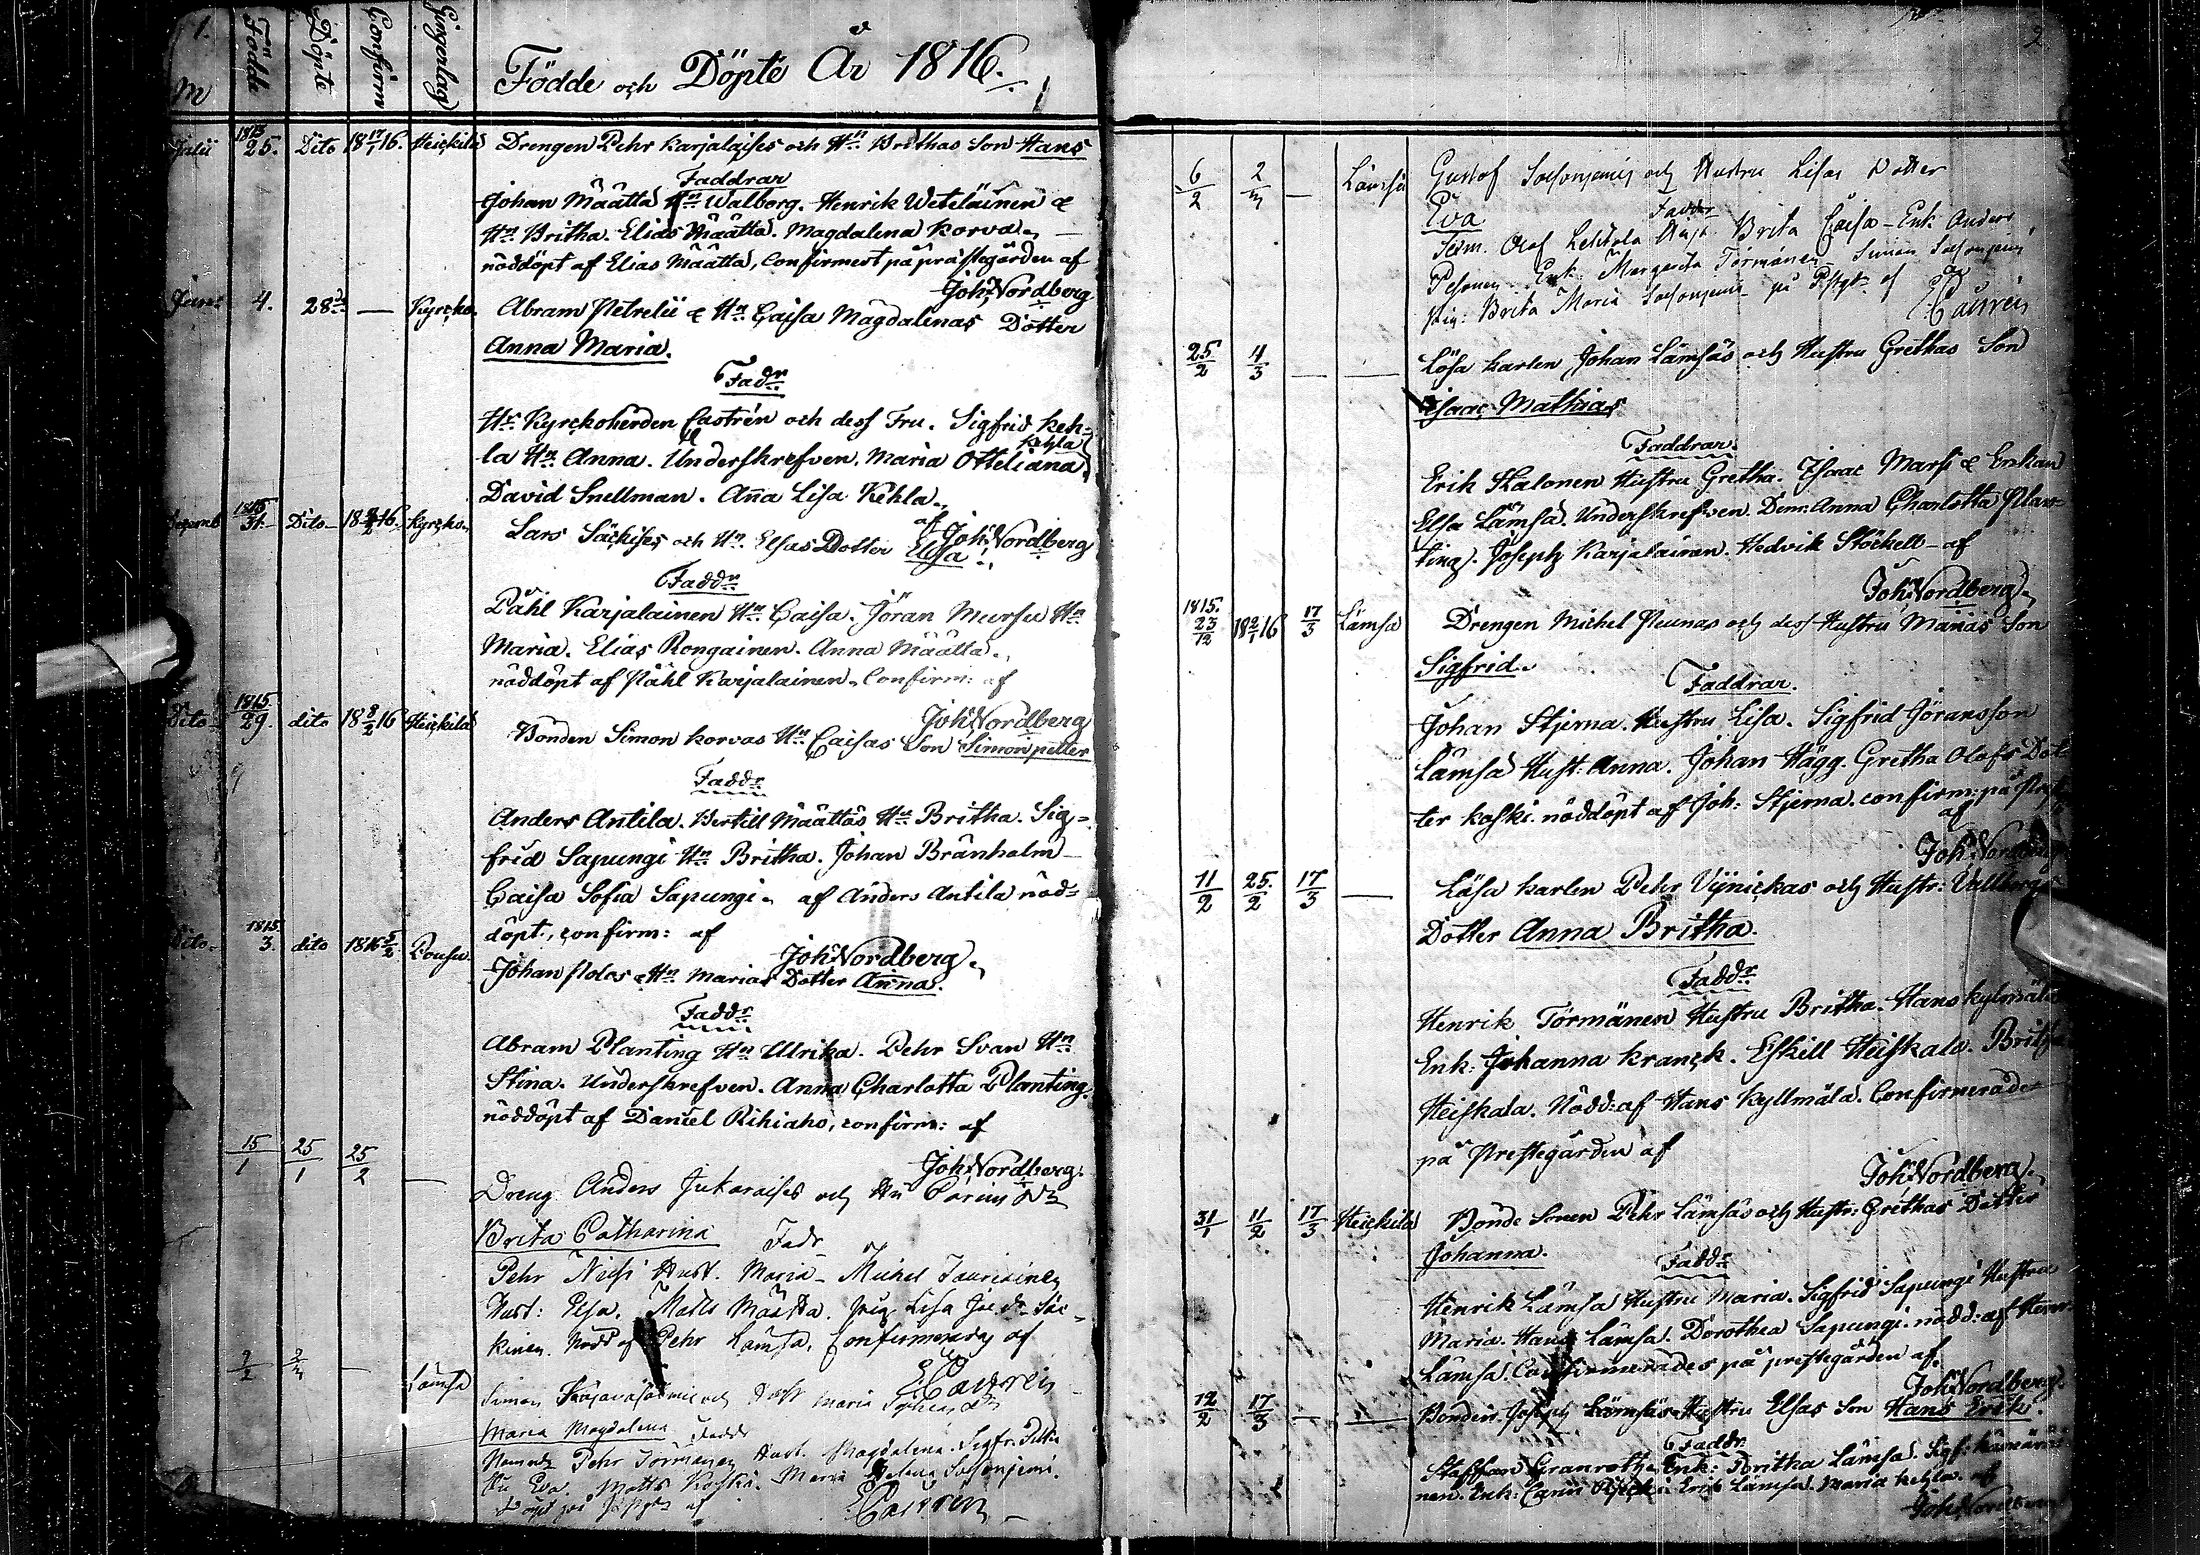 1.
M
Födde
Döpte
Confirm
Gingerlag
Födde och Döpte År 1816.
1815 25. Dito 18 17/1 16. Heickilä Drengen Pehr Karjalaises och Hn. Brithas Son Hans
Faddrar
Johan Määttä Hn Walborg. Henrik Weteläinen &
Hn. Britha. Elias Määttä. Magdalena Korva
nöddöpt af Elias Määttä, Confirmert på prästegården af
Joh: Nordberg
4. 28 — Kyrcko. Abram Petrelii & Hn. Caisa Magdalenas Dotter
Anna Maria.
Fadr
Hr. Kyrckoherden Castrén och dess Fru. Sigfrid Keh-
la Hn. Anna. Underskrefven. Maria Otteliana Kehla
David Snellman. Aña Lisa Kehla.
af Joh: Nordberg
1815 31. Dito 16. Kyrcko. Lars Säckises och Hn. Elsas Dotter Elsa
Faddr
Påhl Karjalainen Hn. Caisa. Jöran Mursu Hn
Maria. Elias Rongainen. Anna Määttä.
nöddöpt af Påhl Karjalainen. Confirm: af
Joh: Nordberg
Dito 1815 29. dito 18 8/2 16 Heickilä Bonden Simon Korvas Hn Caisas Son Simon petter
Faddr
Anders Antila. Bertill Määttäs Hn Britha. Sig=
frid Sapungi Hn Britha. Johan Bränholm
Caisa Sofia Sapungi. af Anders Antila nöd=
döpt, confirm: af
Joh: Nordberg
Dito 1815 3. dito 1816 5/2 Pousu Johan Holos & Hn Marias Dotter Anna.
Faddr
Abram Planting Hn Ulrika. Pehr Svan Hn
Stina. Underskrefven. Anna Charlotta Planting.
nöddöpt af Daniel Rihiaho, confirm: af
Joh: Nordberg
15/1 25/1 25/2 — Dreng Anders och Hu Carins Dr
Brita Catharina Fadr
Pehr Hust. Maria Michel
Hust: Elsa. Matts Määttä. Lisa
kinen. Nödd af Pehr Lämsä, Confirmerades af
E Caurén
2/2 — Lämsä Simon och Hust Maria
Maria Magdalena Faddr
Pehr Törmänen Hust. Magdalena.
Hu Eva. Matts Koski. Maria Helena
Döpt på af E Caurén
2
6/2 — Lämsä Gustof och Hustru Lisas Dotter
Eva Faddr
Olof Lehtola Brita Caisa Enk Anders
Pesonen Enk: Margareta Törmänen Simon
Brita Maria på af
Caurén
25/2 4/3 — — Lösa Karlen Johan Lämsäs och Hustru Grethas Son
Isaac Mathias
Faddrar.
Erik Hustru Gretha. Isaac & Enkan
Elsa Lämsä. Underskrefven. Anna Charlotta Plan-
ting. Joseph Karjalainen. Hedvik Stöckell af
Joh: Nordberg
1815. 23/12 18 2/1 16 17/3 Lämsä Drengen Michel och des Hustru Marias Son
Sigfrid.
Faddrar.
Johan Stjerna. Hustru Lisa. Sigfrid Göransson
Lämsä Hust: Anna. Johan Hägg. Gretha Olofs Dot
ter Koski. nöddöpt af Joh: Stjerna. confirm: på
af
Joh: Nordberg
11/2 25/2 17/3 — Lösa Karlen Pehr och Hustr:
Dotter Anna Britha
Faddr
Henrik Törmänen Hustru Britha. Hans
Enk: Johanna Kranck. Eskill Heiskala. Britha
Heiskala. Nödd: af Hans Kyllmälä. Confirmerades
på Prestegården af
Joh: Nordberg
31/1 11/2 17/3 Heickilä Bonde Sonen Pehr Lämsäs och Hustr: Grethas Dotter
Johanna.
Faddr
Henrik Lämsä Hustru Maria. Sigfrid Sapungi Hustru
Maria. Hans Lämsä. Dorothea Sapungi. nödd: af
Lämsä. Confirmerades på prestegården af.
Joh: Nordberg.
12/2 17/3 — — Bonden Joseph Lämsäs Hustru Elsas Son Hans Erik
Faddr.
Staffan Granroth. Enk: Britha Lämsä.
nen. Enk: Carin Erik Lämsä. Maria Kehla. af
Joh: Nordberg